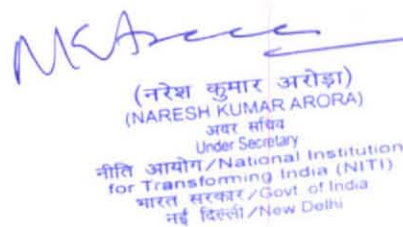 (नरेश कुमार अरोड़ा)
(NARESH KUMAR ARORA)
अवर सचिव
Under Secretary
नीति आयोग/National Institution
for Transforming India (NITI)
भारत सरकार/Govt of India
नई दिल्ली/New Delhi